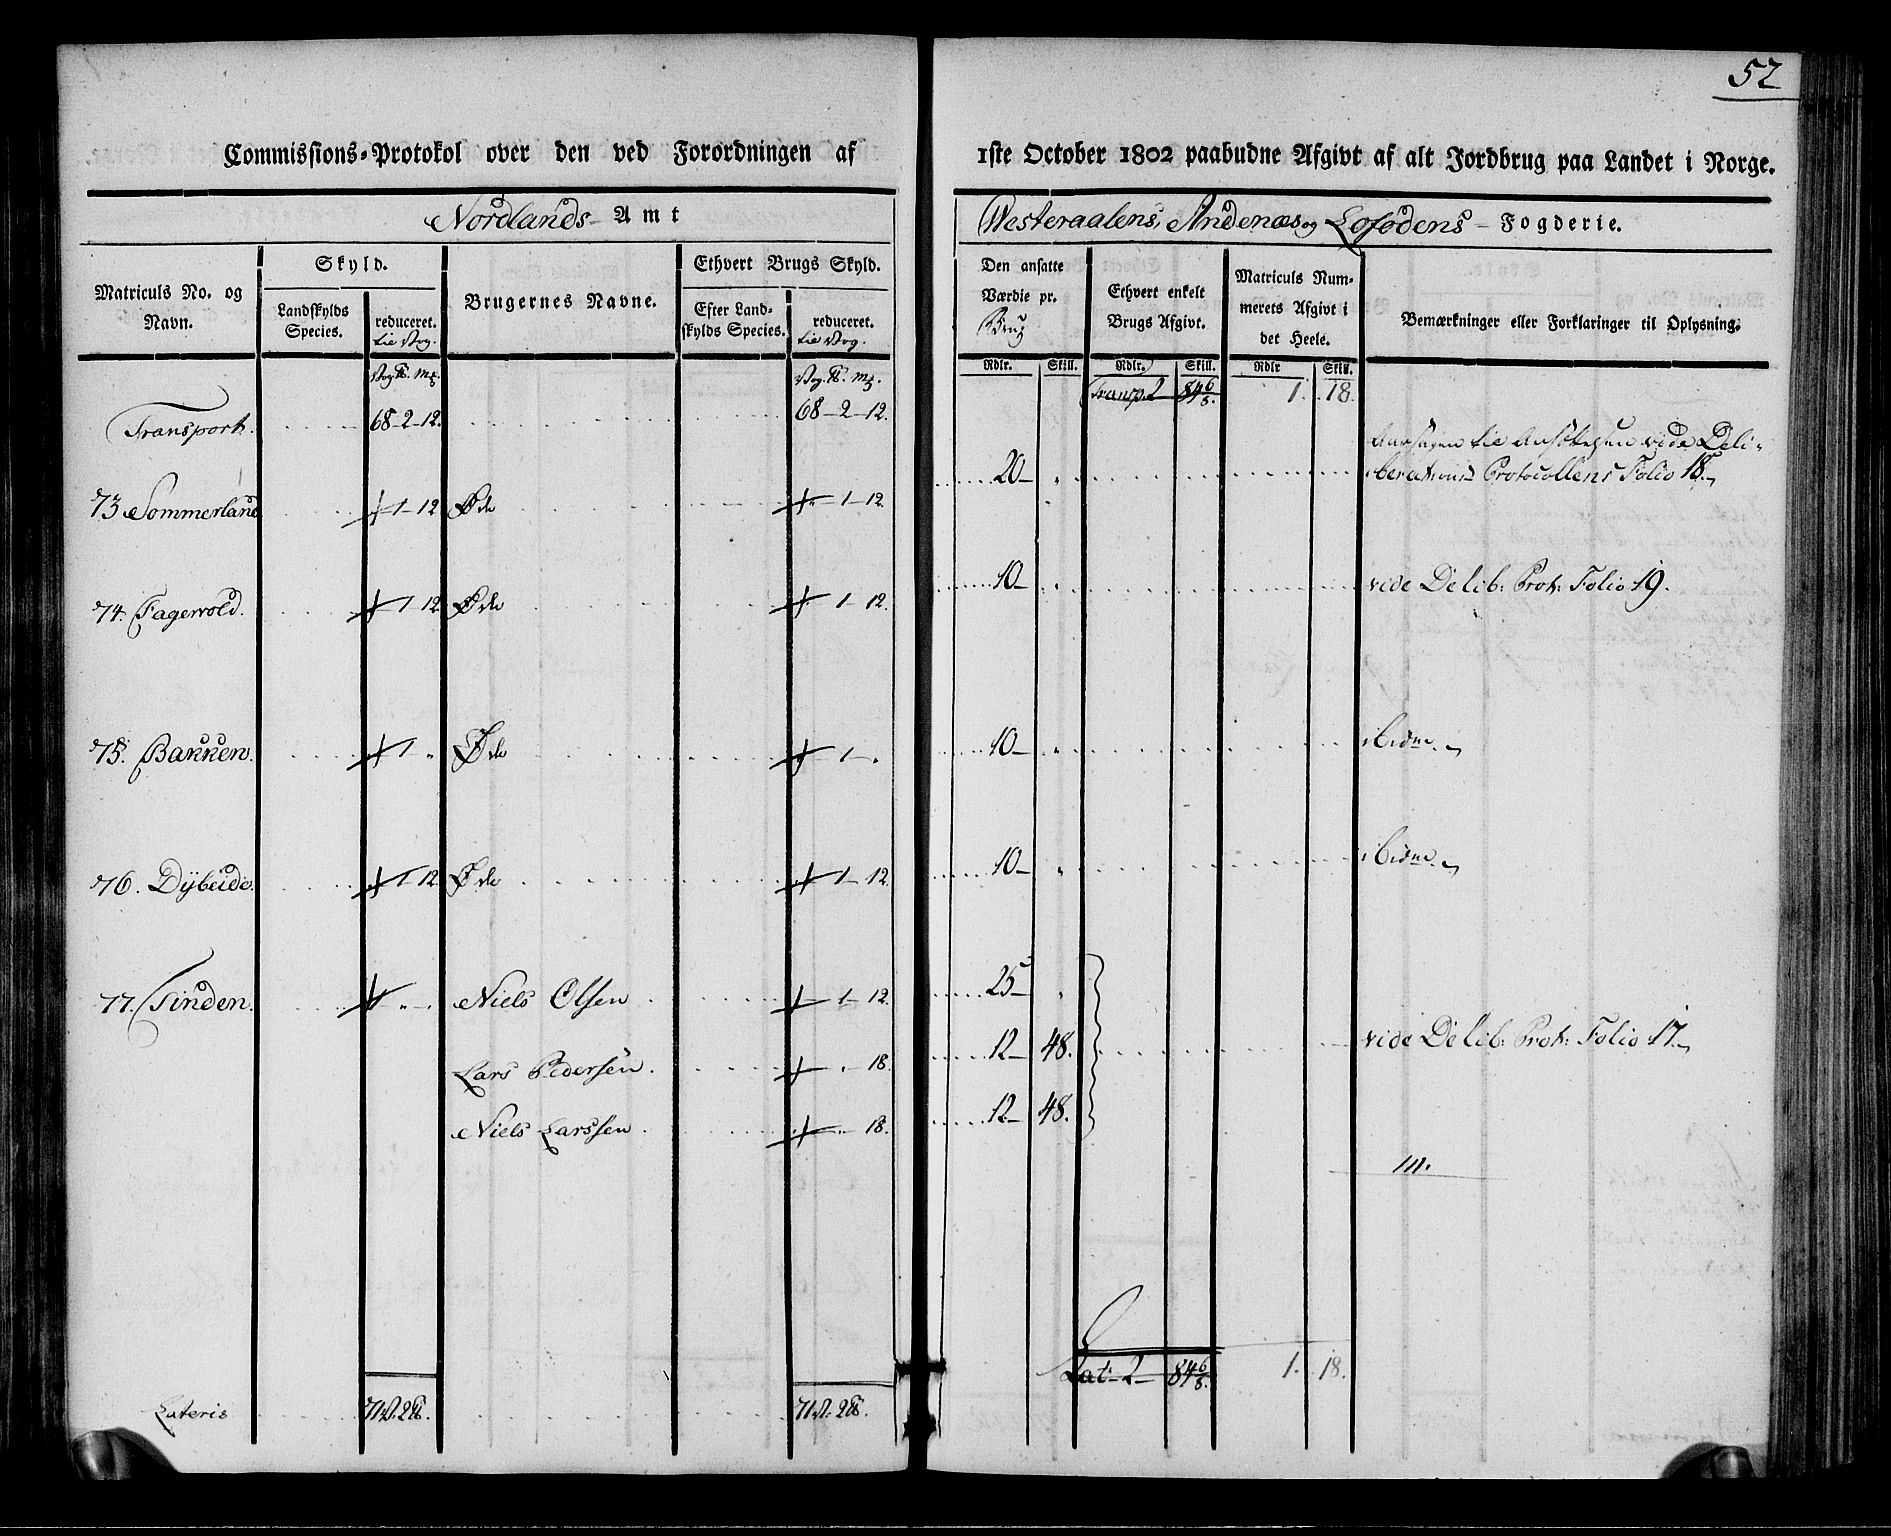 52
Commissions-Protokol over den ved Forordningen af 1ste October 1802 paabudne Afgivt af alt Jordbrug paa Landet i Norge.
Nordlands Amt
Westeraalens, Andenæs og Lofodens - Fogderie.
Matriculs No. og Navn.
Skyld.
Landskylds Species.
reduceret. tie Vog.
Brugernes Navne.
Ethvert Brugs Skyld.
Efter Landskylds Species.
reduceret. tie Vog.
Den ansatte Værdie pr. Brug
Ethvert enkelt Brugs Afgivt.
Matriculs Nummerets Afgivt i det Heele.
Bemærkninger eller Forklaringer til Oplysning.
Rdlr. Skill. Rdlr. Skill. Rdlr Skill.
Transp. 2 84 6/8. 1. 18.
Transport. 68-2-12. 68-2-12.
73 Sommerland 1-12 Øde 1-12. 20 - " vide Deliberations Protocollens Folio 18.
74. Fagervold. 1 12 Øde 1-12. 10 - " vide Delib: Prot: Folio 19.
75. Bakken. 1 " Øde 1 - ". 10 - " ibidm.
76. Dybeide. 1-12 Øde 1-12. 10 - " ibidm.
77. Tinden. Niels Olsen 1-12. 25 - "
Lars Pedersen. " 18. 12 - 48. vide Delib: Prot: Folio 17.
Niels Larssen " 18. 12 - 48.
Lateris 71 V. 2 ℔. 71 V. 2 ℔. Lat 2 - 84 6/8. 1. 18.